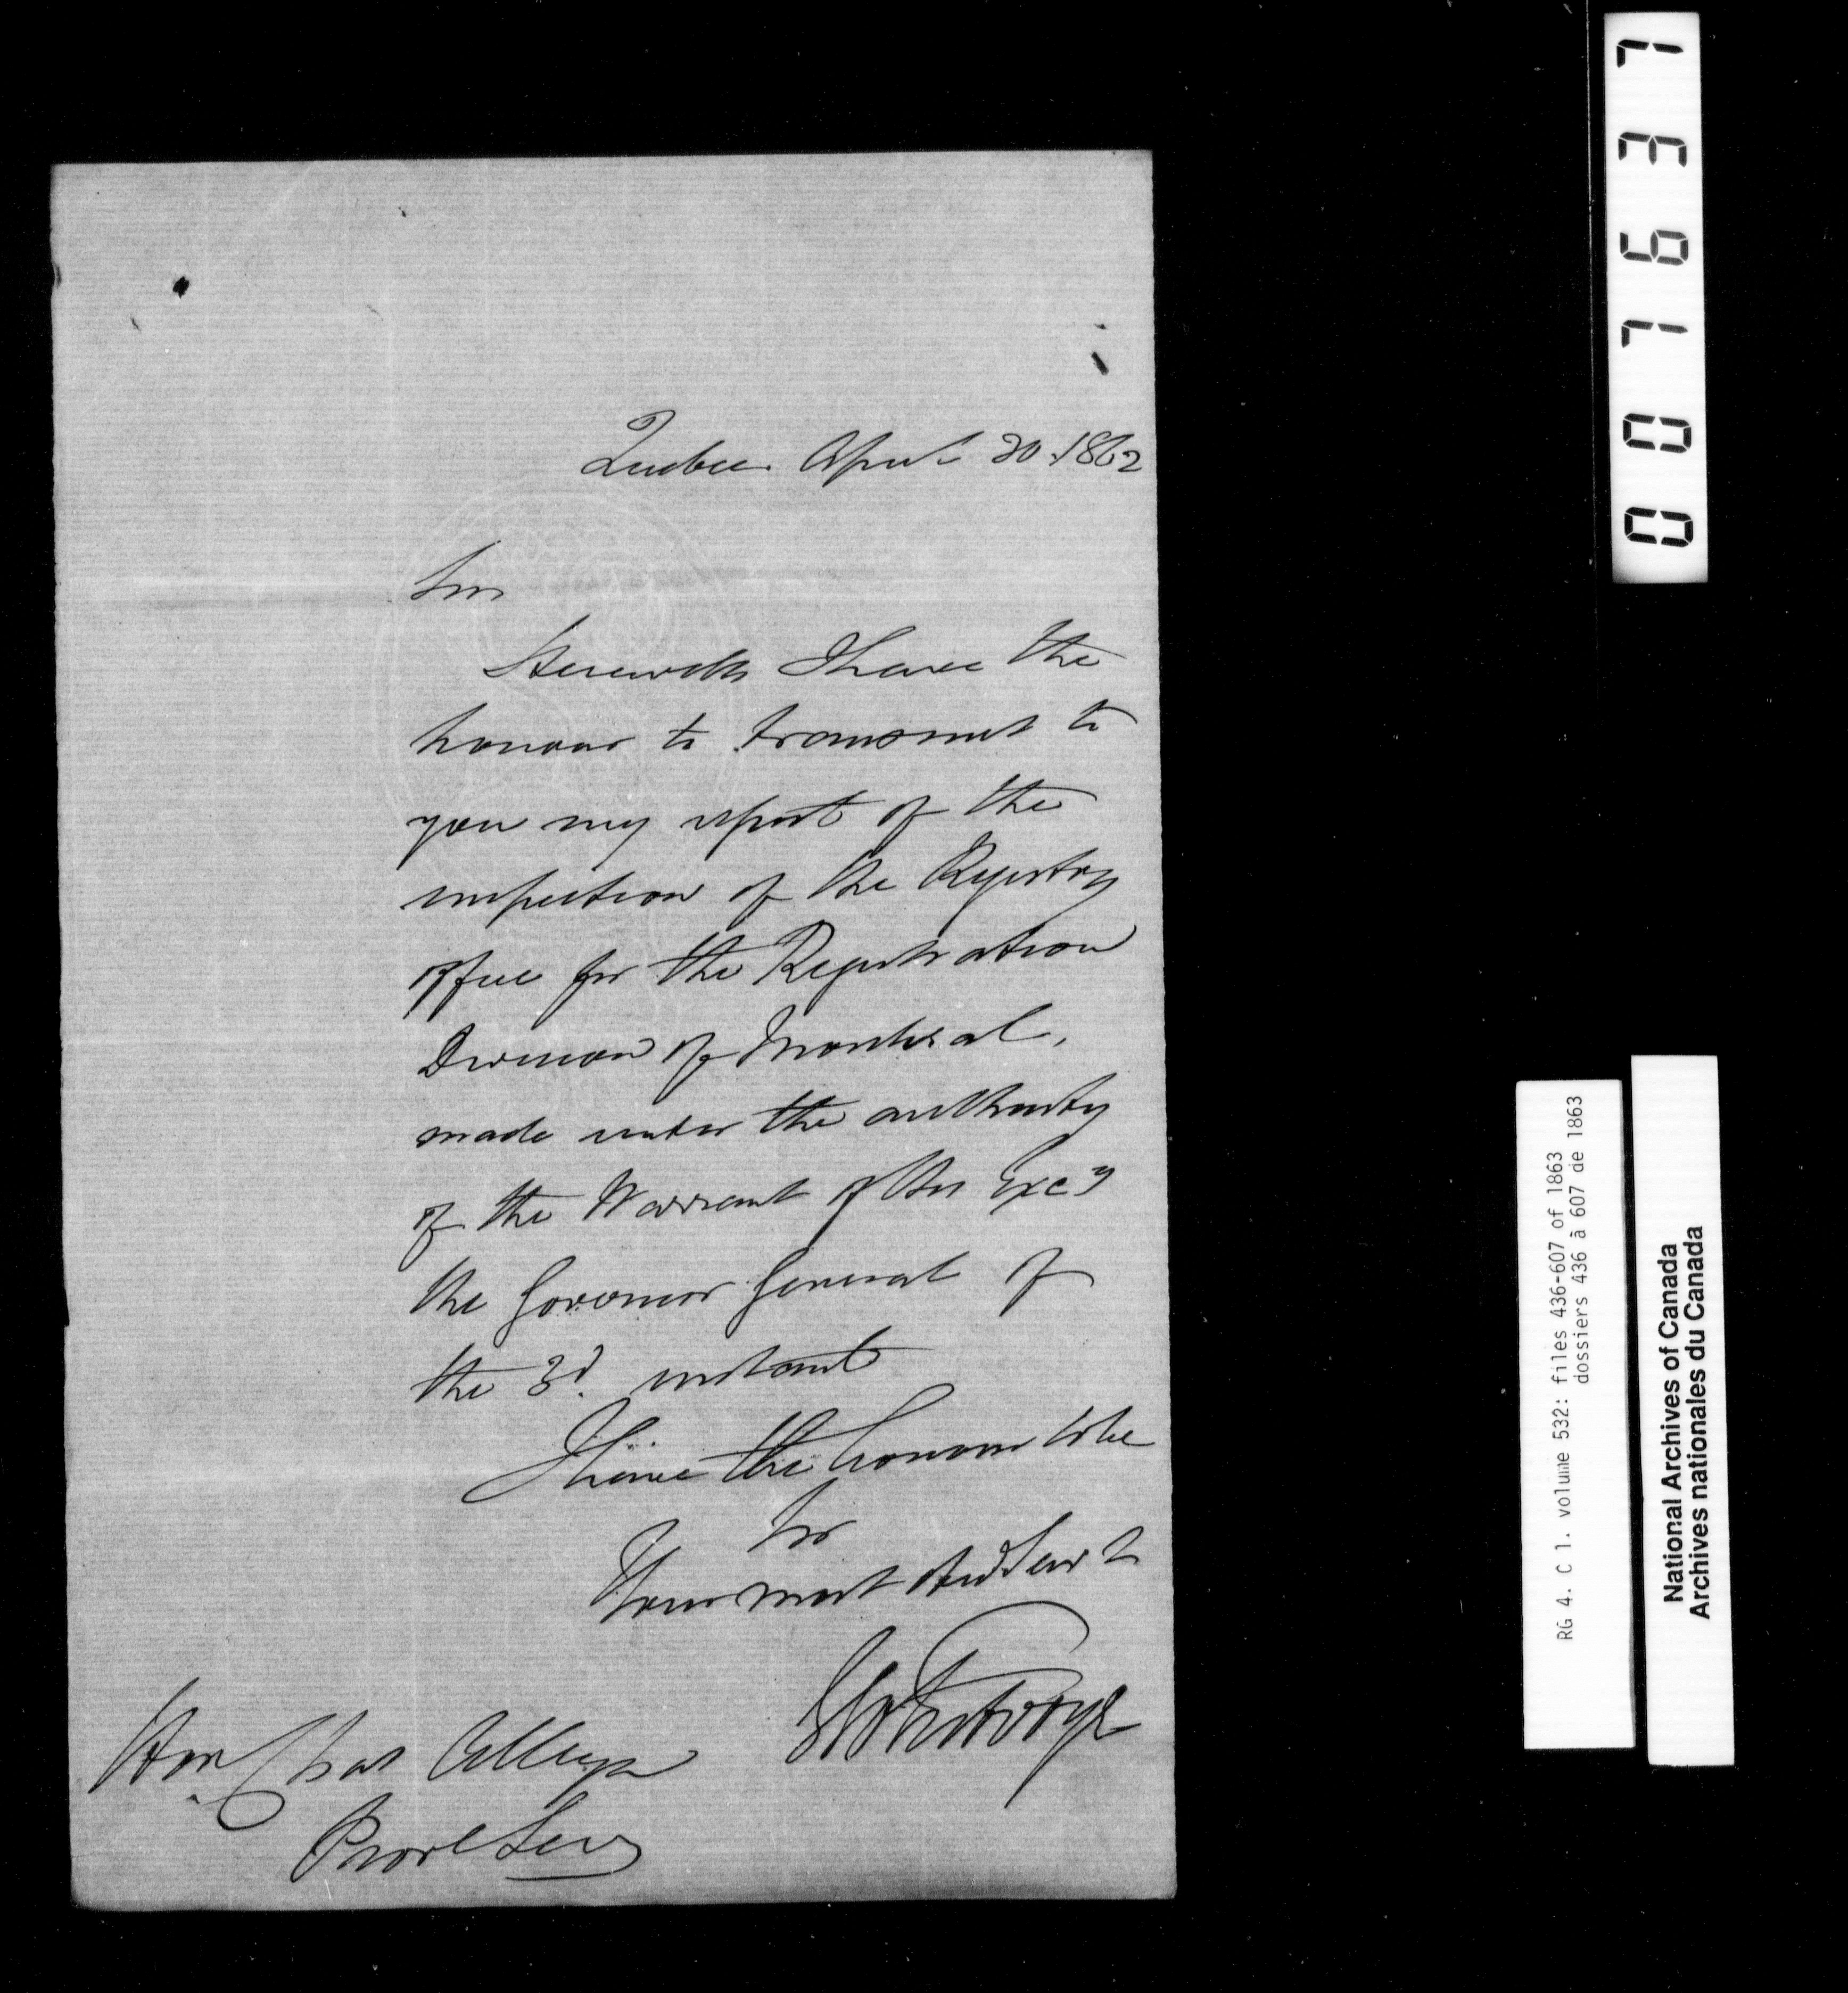 Quebec April 30 1862
Sir
Herewith I have the
honour to transmit to
you my report of the
inspection of the Registry
office for the Registration
Division of Montreal,
made under the authority
of the Warrant of His Excy
the Governor General of
the 3d. instant
I have the honour to be
Sir
Your most obd Servt
Hon Chas Alleyn
Provl Secy
007637
RG 4. C 1. volume 532: files 436-607 of 1863
dossiers 436 à 607 de 1863
National Archives of Canada
Archives nationales du Canada